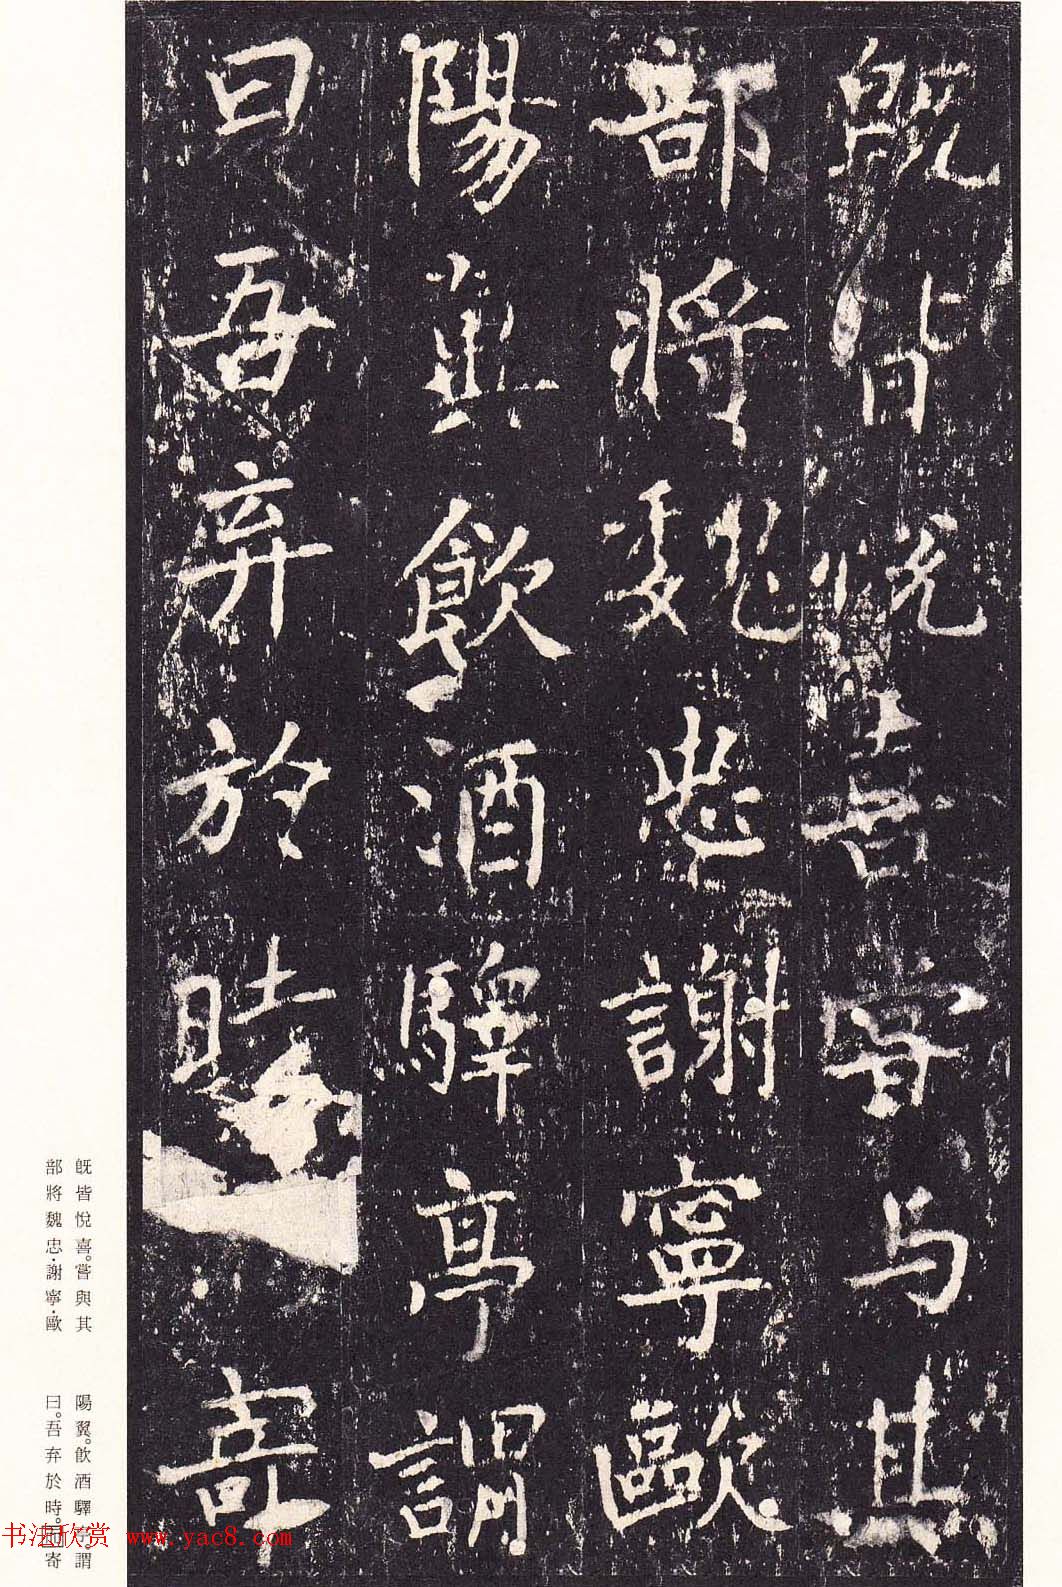 既皆悅喜嘗与其
部將魏忠謝寧歐
陽翼飲酒驛亭謂
曰吾弃於時 寄
既皆悅喜。嘗與其
部將魏忠·謝寧·歐
陽翼。飲酒驛 。謂
曰。吾弃於時。 寄
书法欣赏 www.yac8.com